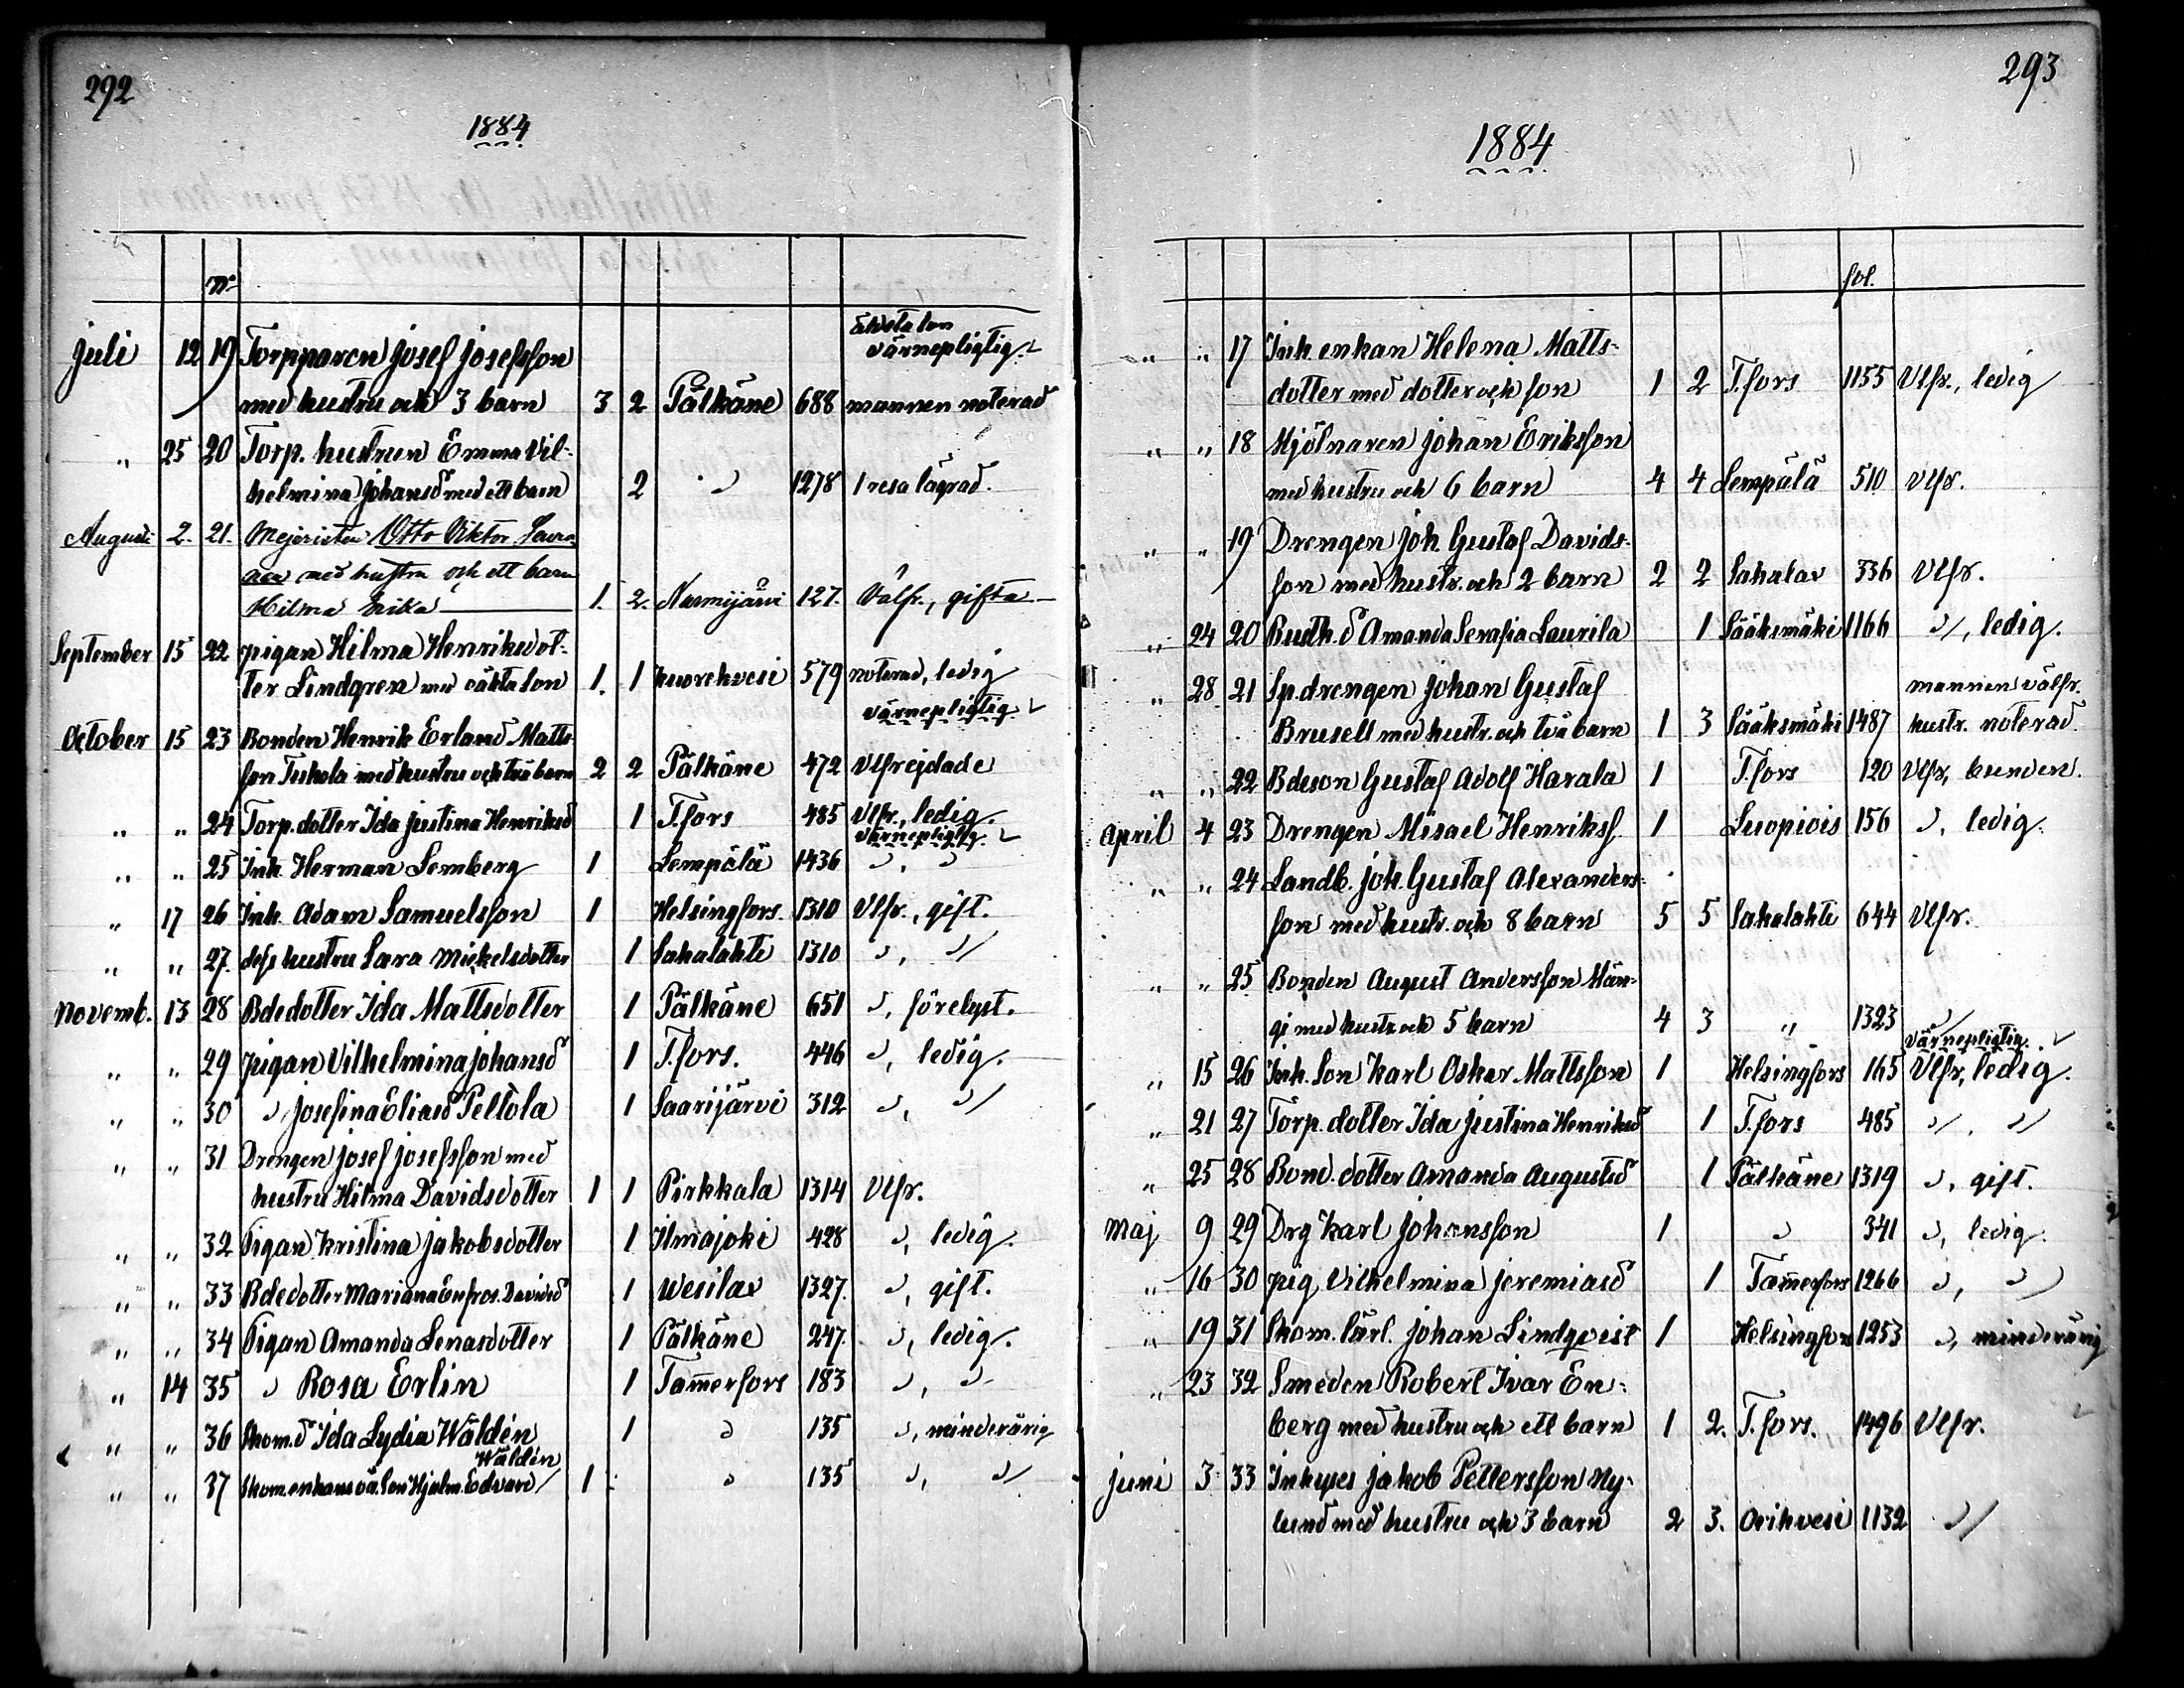 292
1884
No
äldsta son
värnepligtig.
juli 12 19 Torpparen Josef Josefsson
med hustru och 3 barn 3 2 Pälkäne 688 mannen noterad
„ 25 20 Torp. hustrun Emma Vil-
helmina Johansd med ett barn 2 " 1278 1 resa lägrad.
Augusti 2. 21. Mejeristen Otto Viktor
med hustru och ett barn
Hilma 1. 2. Nurmijärvi 127. Välfr., gifta
September 15 22 pigan Hilma Henriksdot-
ter Lindgren med oäkta son 1. 1 Kuorehvesi 579 noterad, ledig
värnepligtig.
October 15 23 Bonden Henrik Erland Matts-
son Tuhola med hustru och två barn 2 2 Pälkäne 472 Vlfrejdade
„ „ 24 Torp. dotter Ida Justina Henriksd 1 T.fors 485 Vlfr., ledig.
värnepligtig.
„ „ 25 Inh. Herman Lemberg 1 Lempälä 1436 ", "
„ 17 26 Inh. Adam Samuelsson 1 Helsingfors. 1310 Vlfr., gift.
„ „ 27. dess hustru Sara Mickelsdotter 1 Sahalahti 1310 ", "
Novemb. 13 28 Bdedotter Ida Mattsdotter 1 Pälkäne 651 ", förelyst.
„ „ 29 pigan Vilhelmina Johansd 1 T.fors. 446 ", ledig.
„ „ 30 " Josefina Eliasd Peltola 1 Saarijärvi 312 ", "
„ „ 31 Drengen Josef Josefsson med
hustru Hilma Davidsdotter 1 1 Pirkkala 1314 Vlfr.
„ „ 32 Pigan Kristina Jakobsdotter 1 Ilmajoki 428 ", ledig.
„ „ 33 Bdedotter Mariana Eufros. Davidsd 1 Wesilax 1327. ", gift.
„ „ 34 Pigan Amanda Lenasdotter 1 Pälkäne 247. ", ledig.
„ 14 35 " Rosa Erlin 1 Tam̄erfors 183 ", "
„ „ 36 Skom.d Ida Lydia Wäldén 1 " 135 ", minderårig
Wäldén
„ „ 37 Skom.enkans oä. son Hjalm. Edvard 1 " 135 ", "
293
1884
fol.
„ „ 17 Inh. enkan Helena Matts-
dotter med dotter och son 1 2 T.fors 1155 Vlfr., ledig
„ „ 18 Mjölnaren Johan Eriksson
med hustru och 6 barn 4 4 Lempälä 510 Vlfr.
„ „ 19 Drengen Joh. Gustaf Davids-
son med hustr. och 2 barn 2 2 Sahalax 336 Vlfr.
„ 24 20 Rusth.d Amanda Serafia Laurila 1 Sääksmäki 1166 ", ledig.
„ 28 21 Sp.drengen Johan Gustaf mannen välfr.
Brusell med hustr. och två barn 1 3 Sääksmäki 1487 hustr. noterad.
„ „ 22 Bdeson Gustaf Adolf Harala 1 T.fors 120 Vlfr, bunden.
April 4 23 Drengen Misael Henrikss 1 Luopiois 156 ", ledig.
„ „ 24 Landb. Joh. Gustaf Alexanders-
son med hustr. och 8 barn 5 5 Sahalahti 644 Vlfr.
„ „ 25 Bonden August Andersson Män-
gi med hustr. och 5 barn 4 3 „ 1323 "
värnepligtig.
„ 15 26 Inh. Son Karl Oskar Mattsson 1 Helsingfors 165 Vlfr, ledig.
„ 21 27 Torp. dotter Ida Justina Henriksd 1 T.fors 485 ", "
„ 25 28 Bond. dotter Amanda Augustsd 1 Pälkäne 1319 ", gift.
Maj 9 29 Drg Karl Johansson 1 " 341 ", ledig.
„ 16 30 pig. Vilhelmina Jeremiasd 1 Tam̄erfors 1266 ", "
„ 19 31 Skom. lärl. Johan Lindqvist 1 Helsingfors 1253 ", minderårig
„ 23 32 Smeden Robert Ivar En-
berg med hustru och ett barn 1 2. T.fors. 1496 Vlfr.
juni 3 33 Inhyses Jakob Pettersson Ny-
lund med hustru och 3 barn 2 3. Orihvesi 1132 "